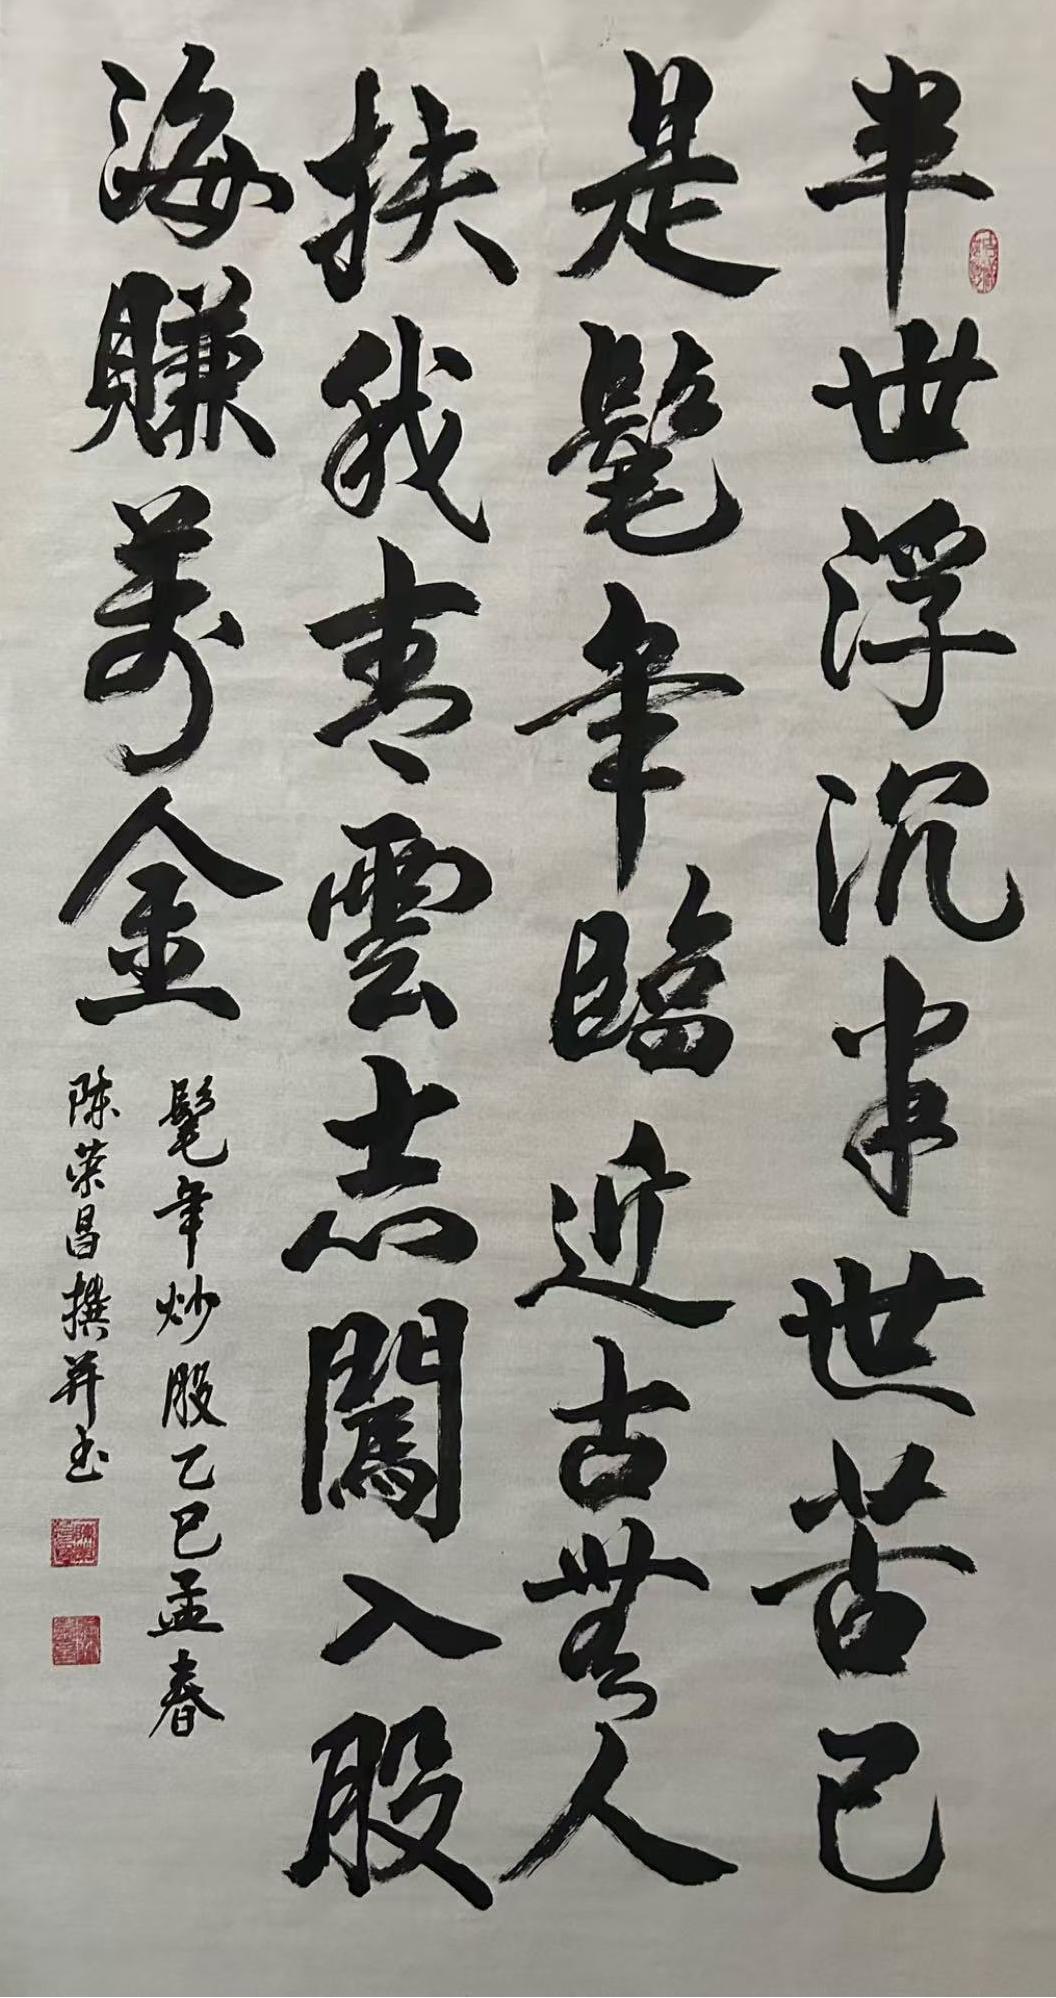 半世浮沉半世苦已
是髦年臨近古無人
扶我青雲志闖入股
海賺萬金
髦年炒股乙巳孟春
陈荣昌撰并书